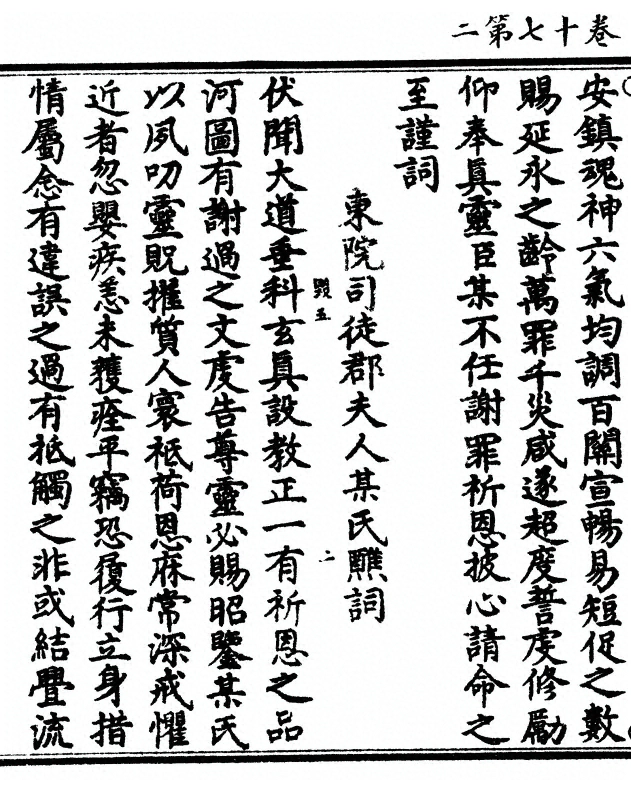 卷十七第二
安鎮魂神六氣均調百關宣暢易短促之數
賜延永之齡萬罪千災咸遂超度誓虔修勵
仰奉眞靈臣某不任謝罪祈恩披心請命之
至謹詞
東院司徒郡夫人某氏醮詞
二
伏聞大道垂科玄眞設教正一有祈恩之品
河圖有謝過之文虔告尊靈必賜昭鑒某氏
以夙叨靈貺擢質人寰祗荷恩庥常深戒懼
近者忽嬰疾恙未獲痊平竊恐履行立身措
情屬念有違誤之過有衹觸之非或結舋流